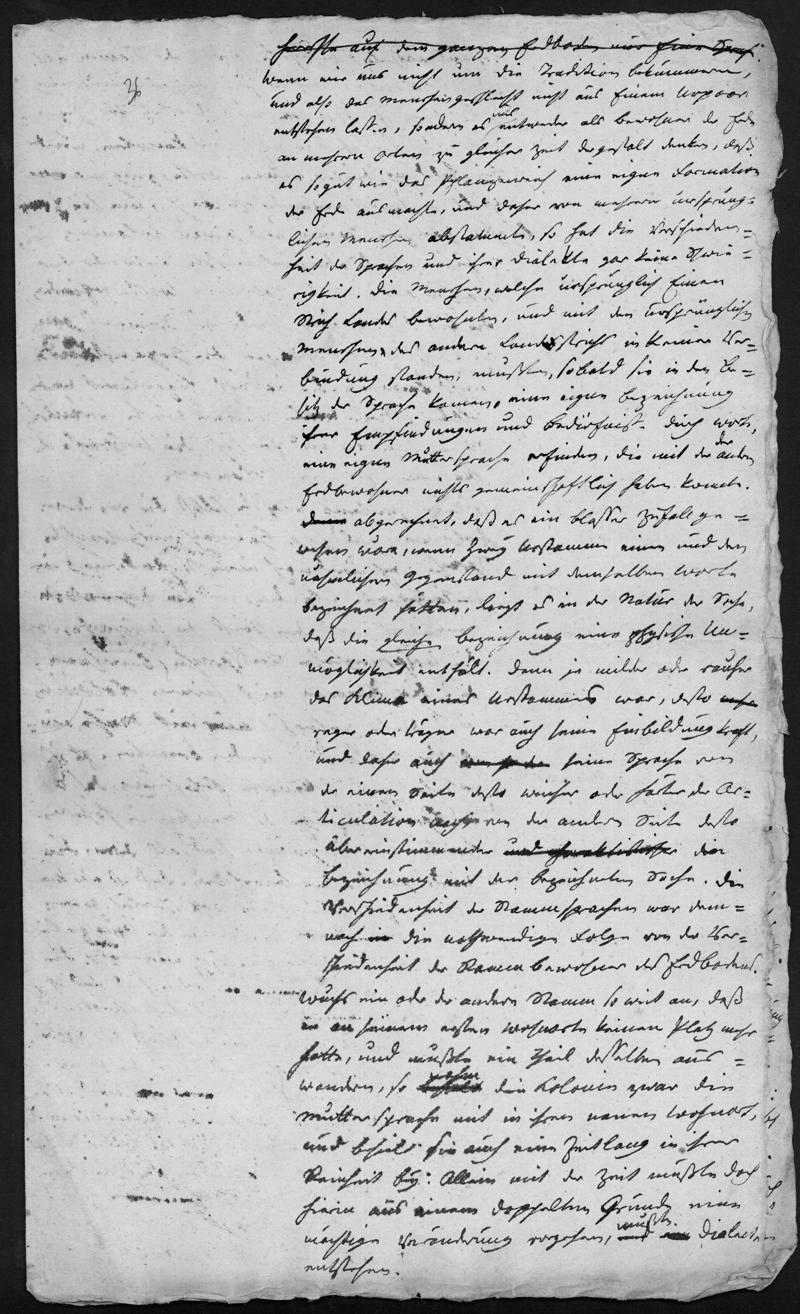 26
herrschte auf dem ganzen Erdboden nur Eine Sprach
wenn wir uns nicht um die Tradition bekümmern,
und also das Menschengeschlecht nicht aus Einem Urpaar
entstehen lassen, sondern es uns entweder als bewohner der Erde
an mehrern Orten zu gleicher Zeit dergestalt denken, daß
es so gut wie das Pflanzenreich eine eigne Formation
der Erde ausmachte, und daher von mehrern ursprüng=
lichen Menschen abstammte, so hat die Verschieden=
heit der Sprachen und ihrer Dialekte gar keine Schwie=
rigkeit. Die Menschen, welche ursprünglich Einen
Strich Landes bewohnten, und mit den ursprünglichen
Menschen des andern Landstrichs in keiner Ver=
bindung standen, mußten, sobald sie in den Be=
sitz der Sprache kamen, eine eigne bezeichnung
ihrer Empfindungen und bedürfniße durch worte,
eine eigne Muttersprache erfinden, die mit der der andern
Erdbewohner nichts gemeinschaftlich haben konnte.
denn abgerechnet, daß es ein blosser Zufall ge=
wesen wäre, wenn zwey Urstämme einen und den
nähmlichen Gegenstand mit demselben worte
bezeichnet hätten, liegt es in der Natur der Sache,
daß die gleiche bezeichnung eine physische Un=
möglichkeit enthält. Denn je milder oder rauher
das Klima eines Urstammes war, desto
reger oder träger war auch seine Einbildungskraft,
und daher auch seine Sprache von
der einen Seite desto weicher oder härter der Ar=
ticulation nach, von der andern Seite desto
übereinstimmender und charakteristischer die
bezeichnung mit der bezeichneten Sache. Die
Verschiedenheit der Stammsprachen war dem=
nach die nothwendige Folge von der Ver=
schiedenheit der Stammbewohner des Erdbodens.
Wuchs ein oder der andere Stamm so weit an, daß
er an seinem ersten wohnorte keinen Platz mehr
hatte, und mußte ein Theil desselben aus=
wandern, so nahm die Kolonie zwar die
Muttersprache mit in ihren neuen Wohnort,
und behielt sie auch eine Zeitlang in ihrer
Reinheit bey: Allein mit der Zeit mußte doch
hierin aus einem doppelten Grunde eine
mächtige Veränderung vorgehen, und mußten Dialecte
entstehen.